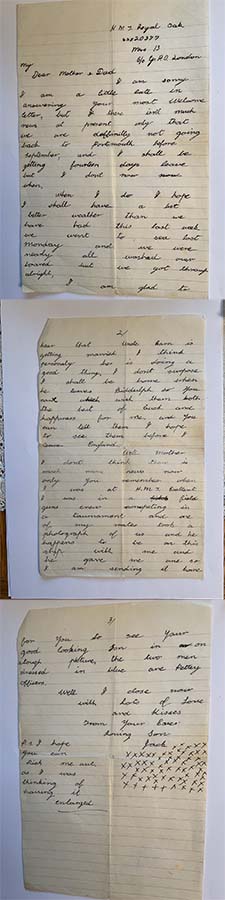 H.M.S Royal Oak
Mess 13
C/o G.P.O. London
My
Dear Mother & Dad
I am sorry
I am a little late in
answering your most welcome
letter, but there isnt much
news at present only that
we are deffinitly not going
back to Portsmouth before
september, and I shall be
getting fourteen days leave
but I dont now
when,
when I do I hope
I shall have a lot
better weather than we
have had this last week
we went to sea last
Monday and we were
nearly all washed over
board but we got through
alright,
I am glad to
2/
hear that Uncle is
getting married I think
personaly he is doing a
good thing, I dont suppose
I shall be home when
he leaves Biddulph so You
wish them both
the best of luck and
happiness for me, and You
can tell them I hope
to see them before I
leave England.
Well Mother
I dont think there is
much more news now
only You remember when
I was at H.M.S.
I was in a field
guns crew competing in
a tournament and one
of my mates took a
photograph of us and he
happens to be in this
ship with me and
he gave me one so
I am sending it here
3/
for You to see Your
good looking Son in on
the two men
dressed in blue are Pettey
officers.
Well I close now
with lots of Love
and Kisses
From Your Ever
loving Son
Jack
P.s I hope
You can
Pick me out,
as I was
thinking of
having it
enlarged